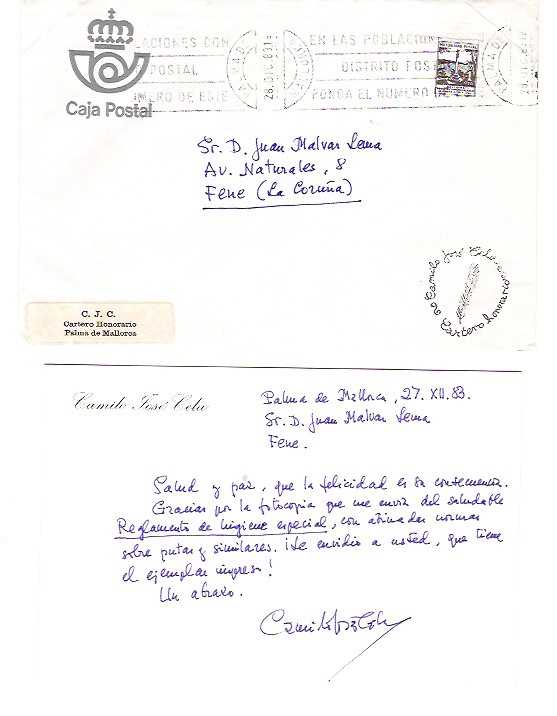 LACIONES CON
POSTAL
MERO DE ESTE
28.DIC.83
EN LAS POBLACIONE
DISTRITO POS
PONGA EL NUMERO DE ESTE
Caja Postal
Sr. D. Juan Malvar Lema
Av. Naturales, 8
Fene (La Coruña)
Camilo José Cela
Cartero honorario
C. J. C.
Cartero Honorario
Palma de Mallorca
Camilo José Cela
Palma de Mallorca, 27. XII. 83.
Sr. D. Juan Malvar Lema
Fene.
Salud y paz, que la felicidad es su consecuencia.
Gracias por la fotocopia que me envía del saludable
Reglamento de higiene especial, con atinadas normas
sobre putas y similares. ¡Le envidio a usted, que tiene
el ejemplar impreso!
Un abrazo.
Camilo José Cela